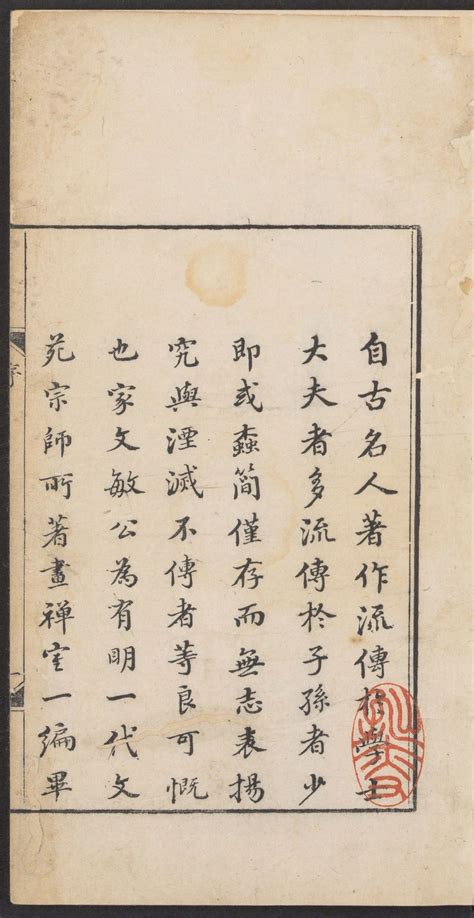 自古名人著作流傳於學士
大夫者多流傳於子孫者少
即或蠹簡僅存而無志表揚
究與湮滅不傳者等良可慨
也家文敏公為有明一代文
苑宗師所著畫禪室一編畢
序
一